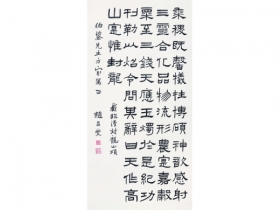 黍稷既馨犧牲博碩神歆感射
三靈合化品物流形農寔嘉穀
粟至三錢天應玉燭於是紀功
刊勒以炤令問其辭曰天作高
山寔惟封龍
臨漢封龍山頌
先生方家屬正